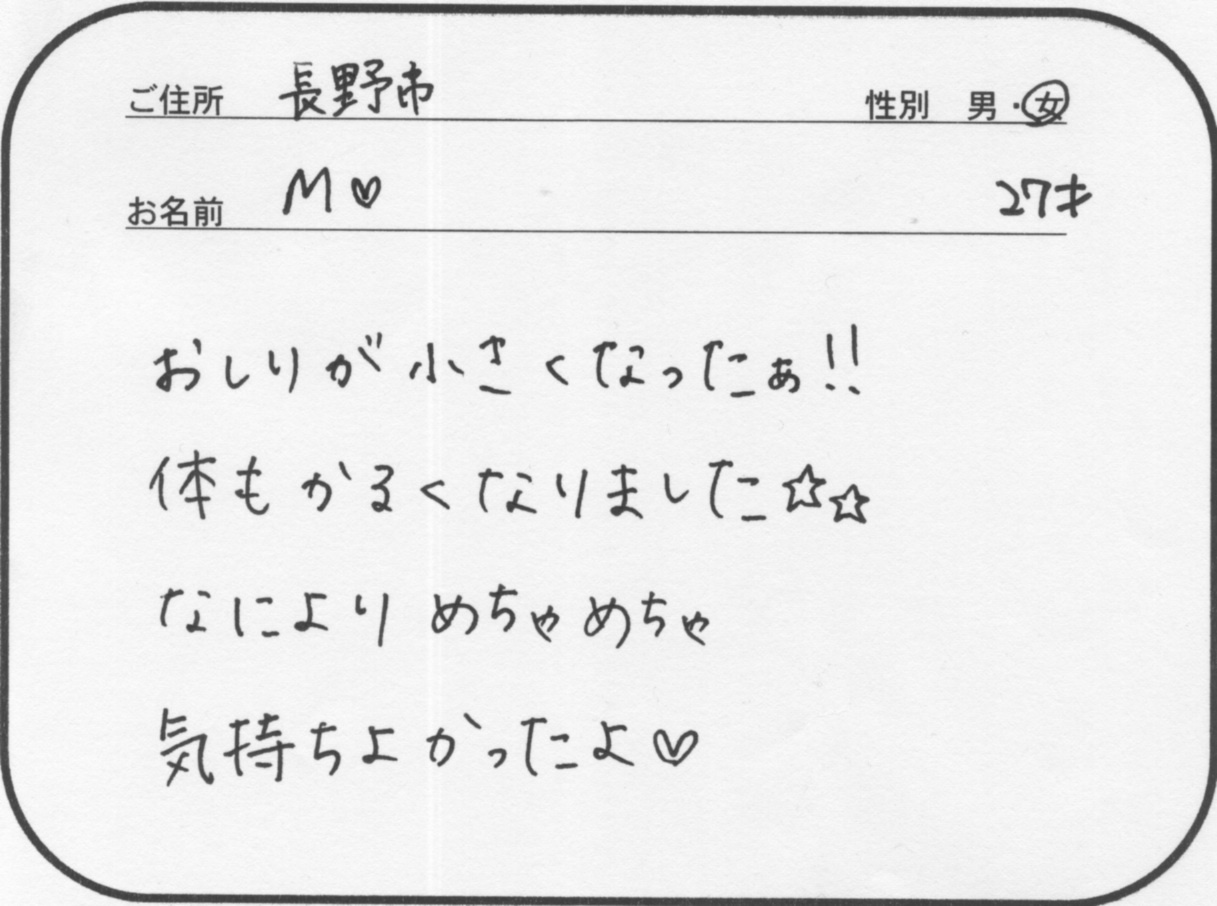 ご住所 長野市 性別 男・女
お名前 M♡ 27才
おしりが小さくなったぁ!!
体もかるくなりました☆☆
なにより めちゃめちゃ
気持ちよかったよ♡